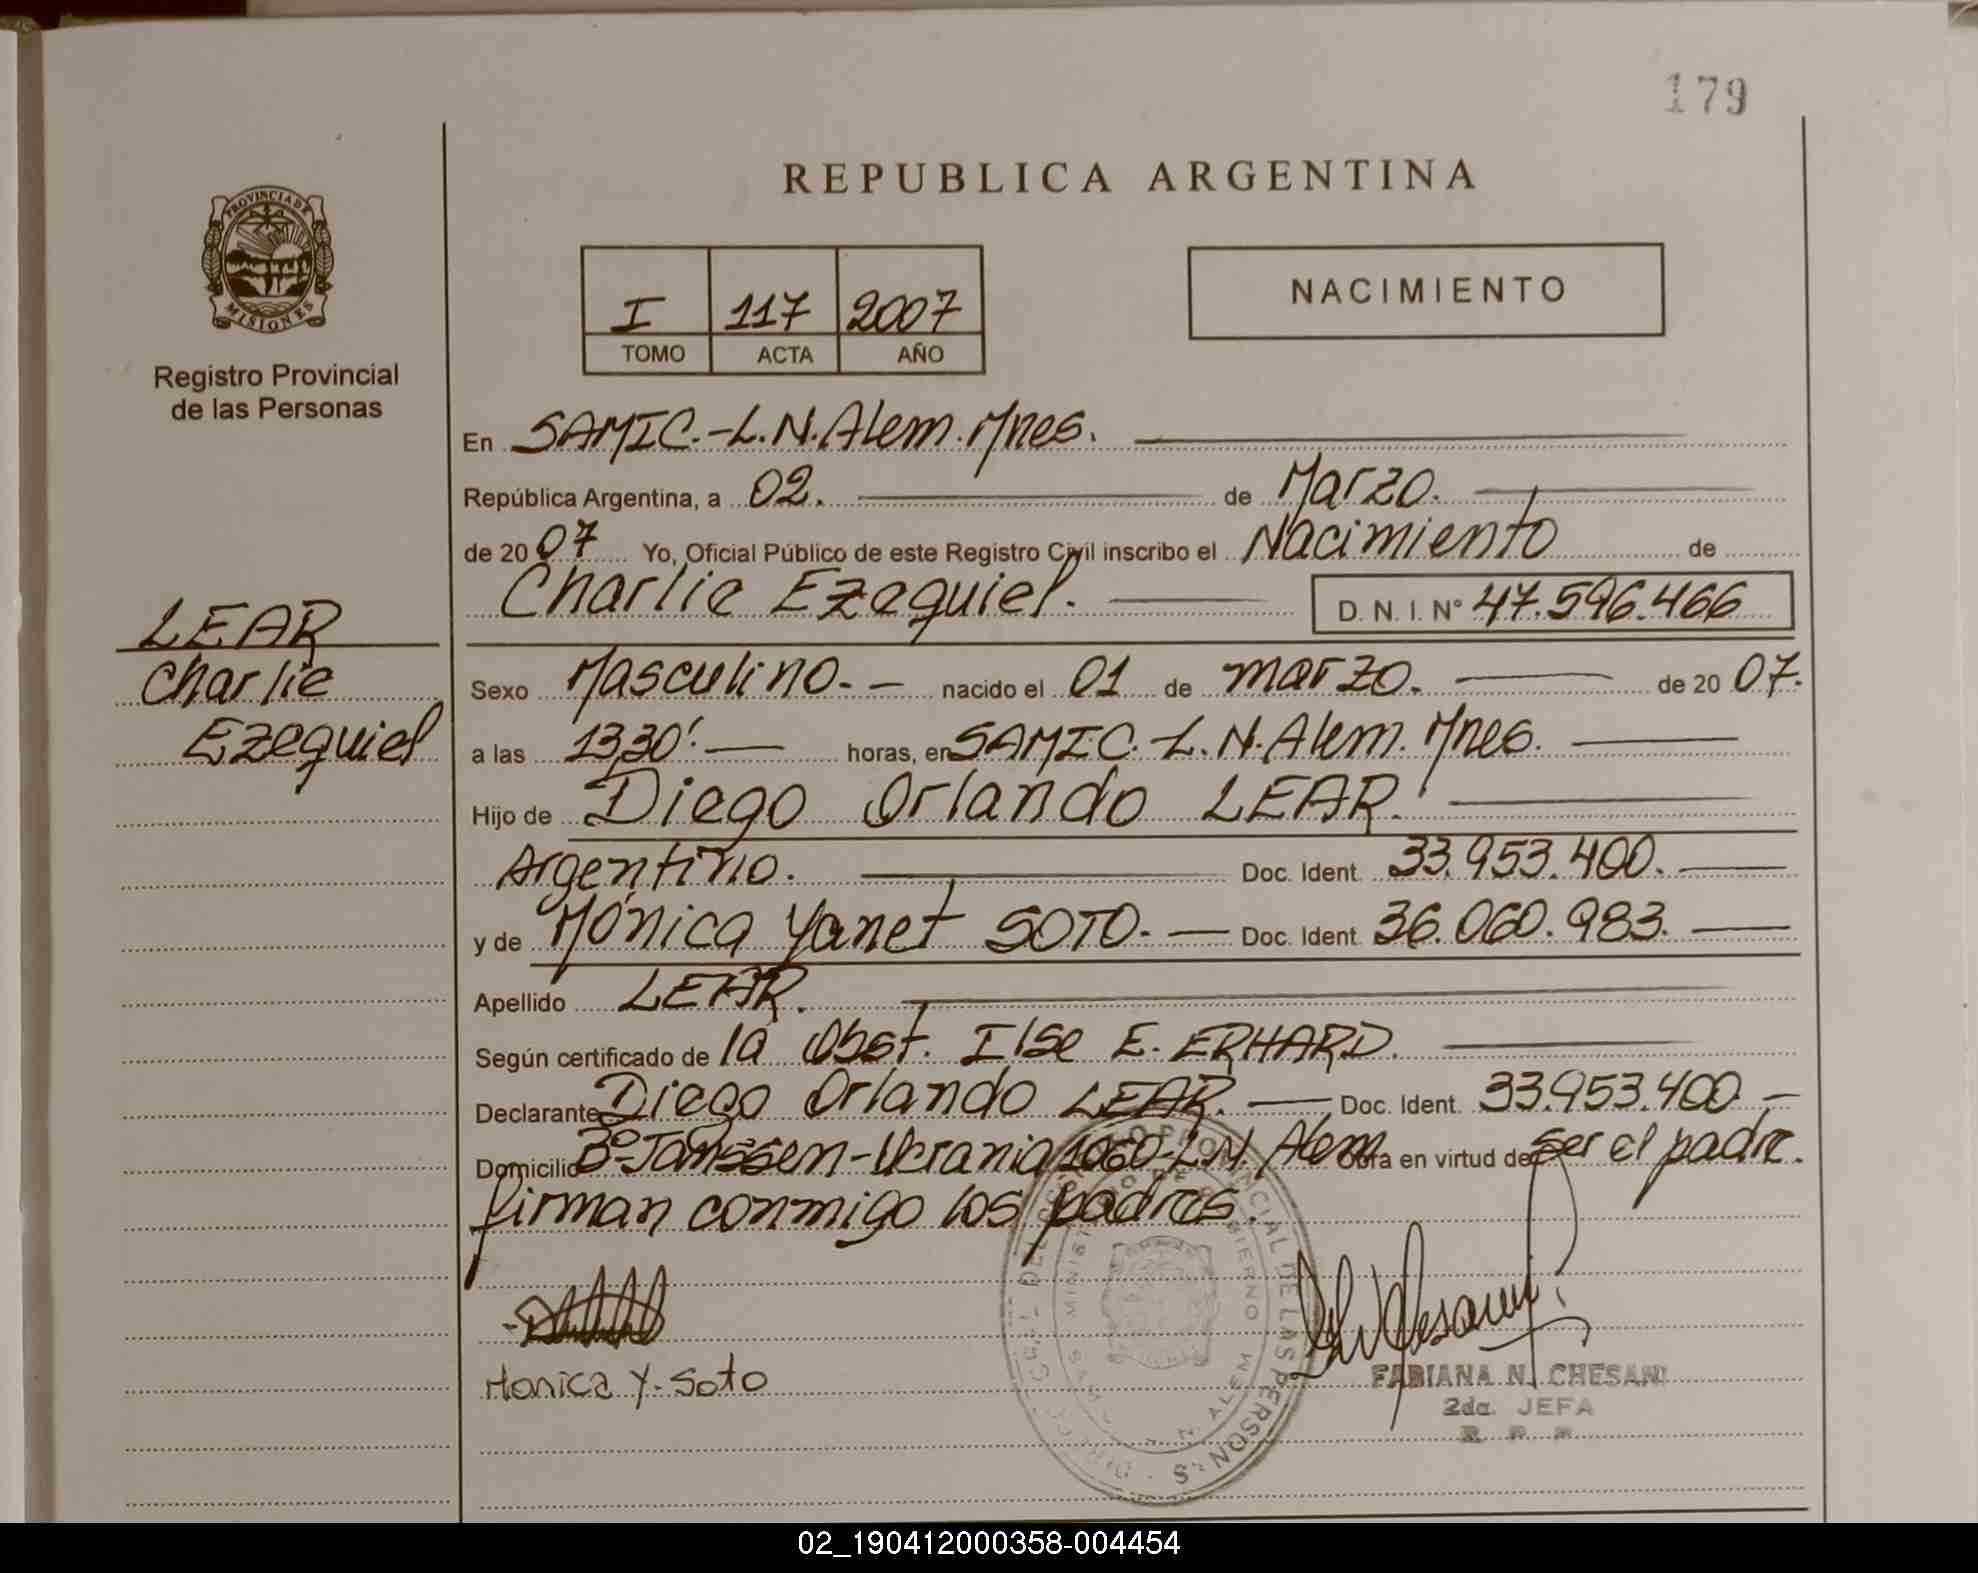 179
REPUBLICA ARGENTINA
PROVINCIA DE
MISIONES
Registro Provincial
de las Personas
I 117 2007
TOMO ACTA AÑO
NACIMIENTO
En SAMIC.-L.N.Alem.Mnes.
República Argentina, a 02. de Marzo.
de 2007 Yo, Oficial Público de este Registro Civil inscribo el Nacimiento de
Charlie Ezequiel. D. N. I. N° 47.596.466
LEAR
Charlie
Ezequiel
Sexo Masculino.- nacido el 01 de marzo. de 2007.
a las 13,30'. horas, en SAMIC.-L.N.Alem.Mnes.
Hijo de Diego Orlando LEAR.
Argentino. Doc. Ident. 33.953.400.
y de Mónica Yanet SOTO.- Doc. Ident. 36.060.983.
Apellido LEAR.
Según certificado de la Obst. Ilse E. ERHARD.
Declarante Diego Orlando LEAR. Doc. Ident. 33.953.400.-
Domicilio B°-Janssen-Ucrania 1060-L.N. Alem Obra en virtud de ser el padre.
firman conmigo los padres.
Monica Y. Soto
FABIANA N. CHESANI
2da. JEFA
02_190412000358-004454